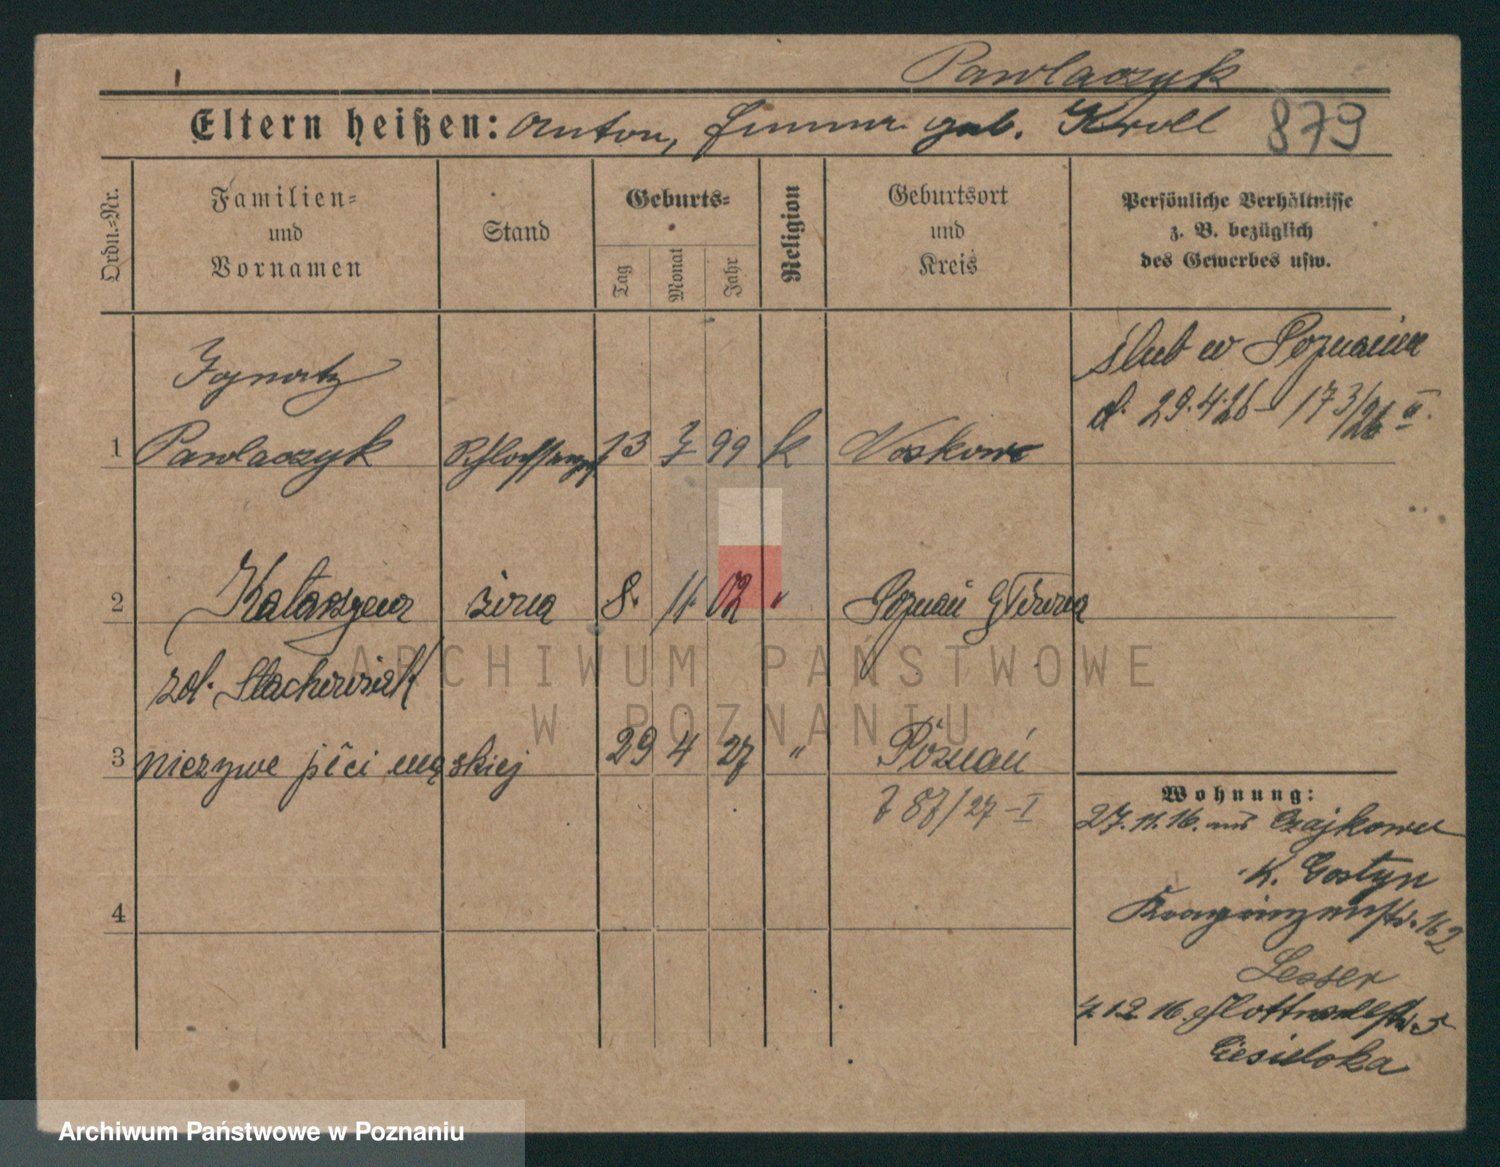 Pawlaczyk
Eltern heißen: Anton, geb. Kroll 879
Ordn.-Nr.
Familien- und Vornamen
Stand
Geburts-
Tag
Monat
Jahr
Religion
Geburtsort und Kreis
Persönliche Verhältnisse
z. B. bezüglich
des Gewerbes usw.
ślub w Poznaniu
d. 29.4.26 - 173/26 II.
Ignatz
1 Pawlaczyk 13 7 99 k
2 Katarzyna żona 8. 11. 02 " Poznań Główna
zd. Stachowiak
3 nieżywe płci męskiej 29 4 27 " Poznań
787/27-I
4
Wohnung:
27.11.16. aus Czajkowo
K. Gostyn
162
Lesser
4.12.16. 5
Ciesielska
ARCHIWUM PAŃSTWOWE
W POZNANIU
Archiwum Państwowe w Poznaniu